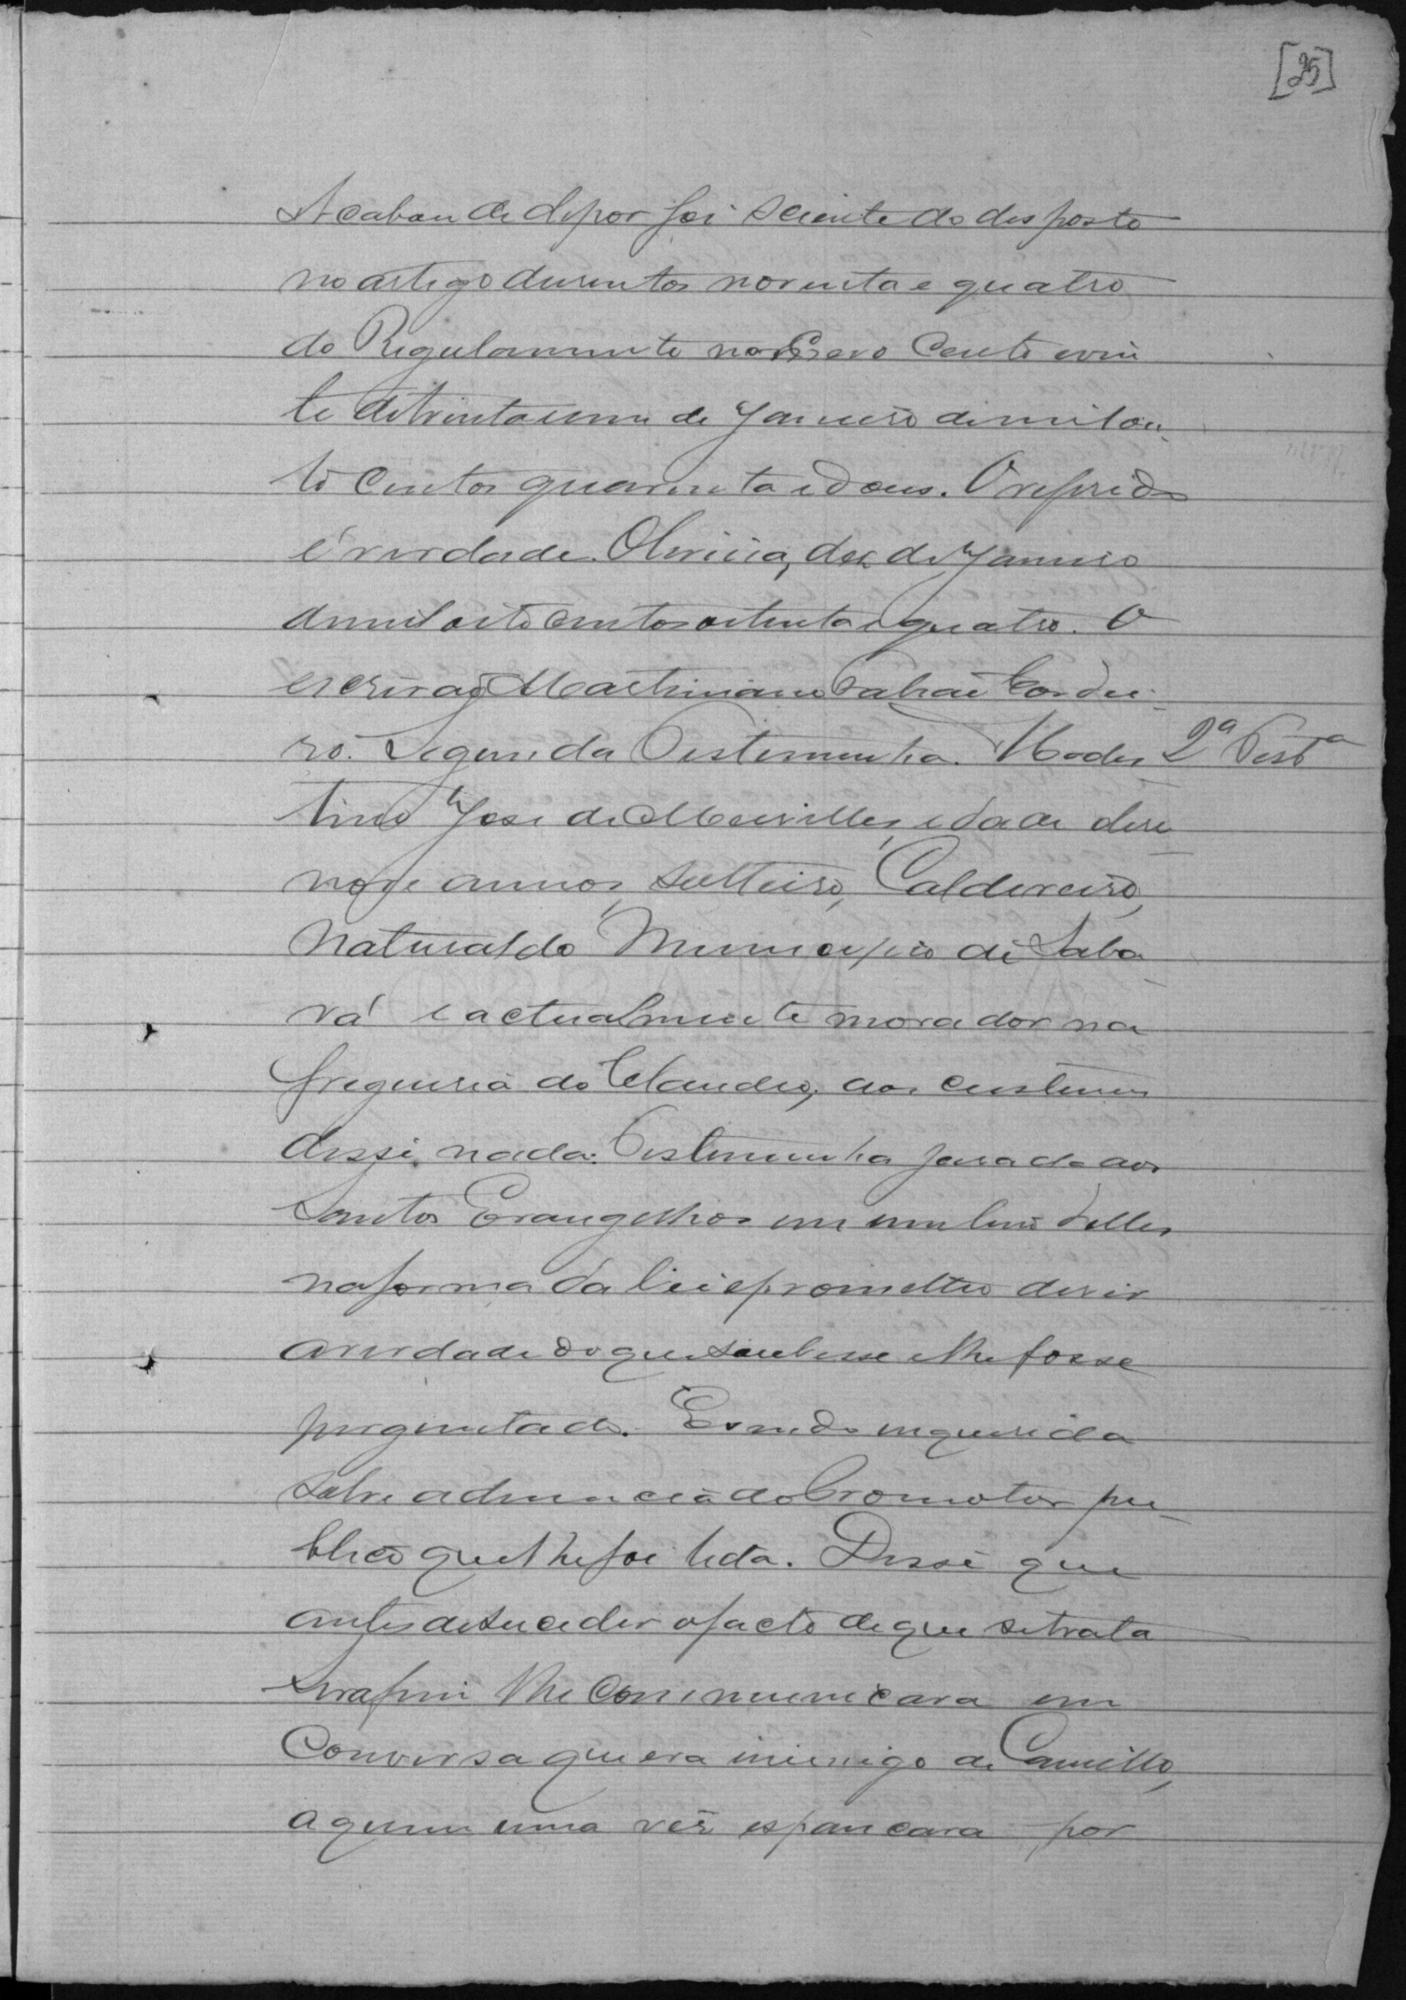 [25]
Acabou de depor foi sciente do desposto
no artigo dusentos noventa e quatro
do Regulamento numero cento e vin
te de trinta e um de Janeiro de mil oi-
to centos quarenta e dous. O referido
é verdade. Oliveira, dez de Janeiro
de mil oito centos oitenta e quatro. O
escrivaõ Martiniano Galvaõ Cordei-
ro. Segunda Testemunha. Modes
2ª Testª
tino José de Meirelles, idade dese
nove annos, solteiro, Caldereiro,
natural do Municipio de Saba
rá e actualmente morador na
freguesia do Claudio, aos custumes
disse nada. Testemunha jurada aos
Santos Evangelhos em um livro delles
na forma da lei e prometteo deser
a verdade do que soubesse e lhe fosse
perguntado. E sendo inquerida
sobre a denuncia do Promotor pu-
blico que lhe foi lida. Disse que
antes de suceder o facto de que se trata
Serafim lhe communicara em
Conversa que era inimigo de Camillo,
a quem uma vez espancara por